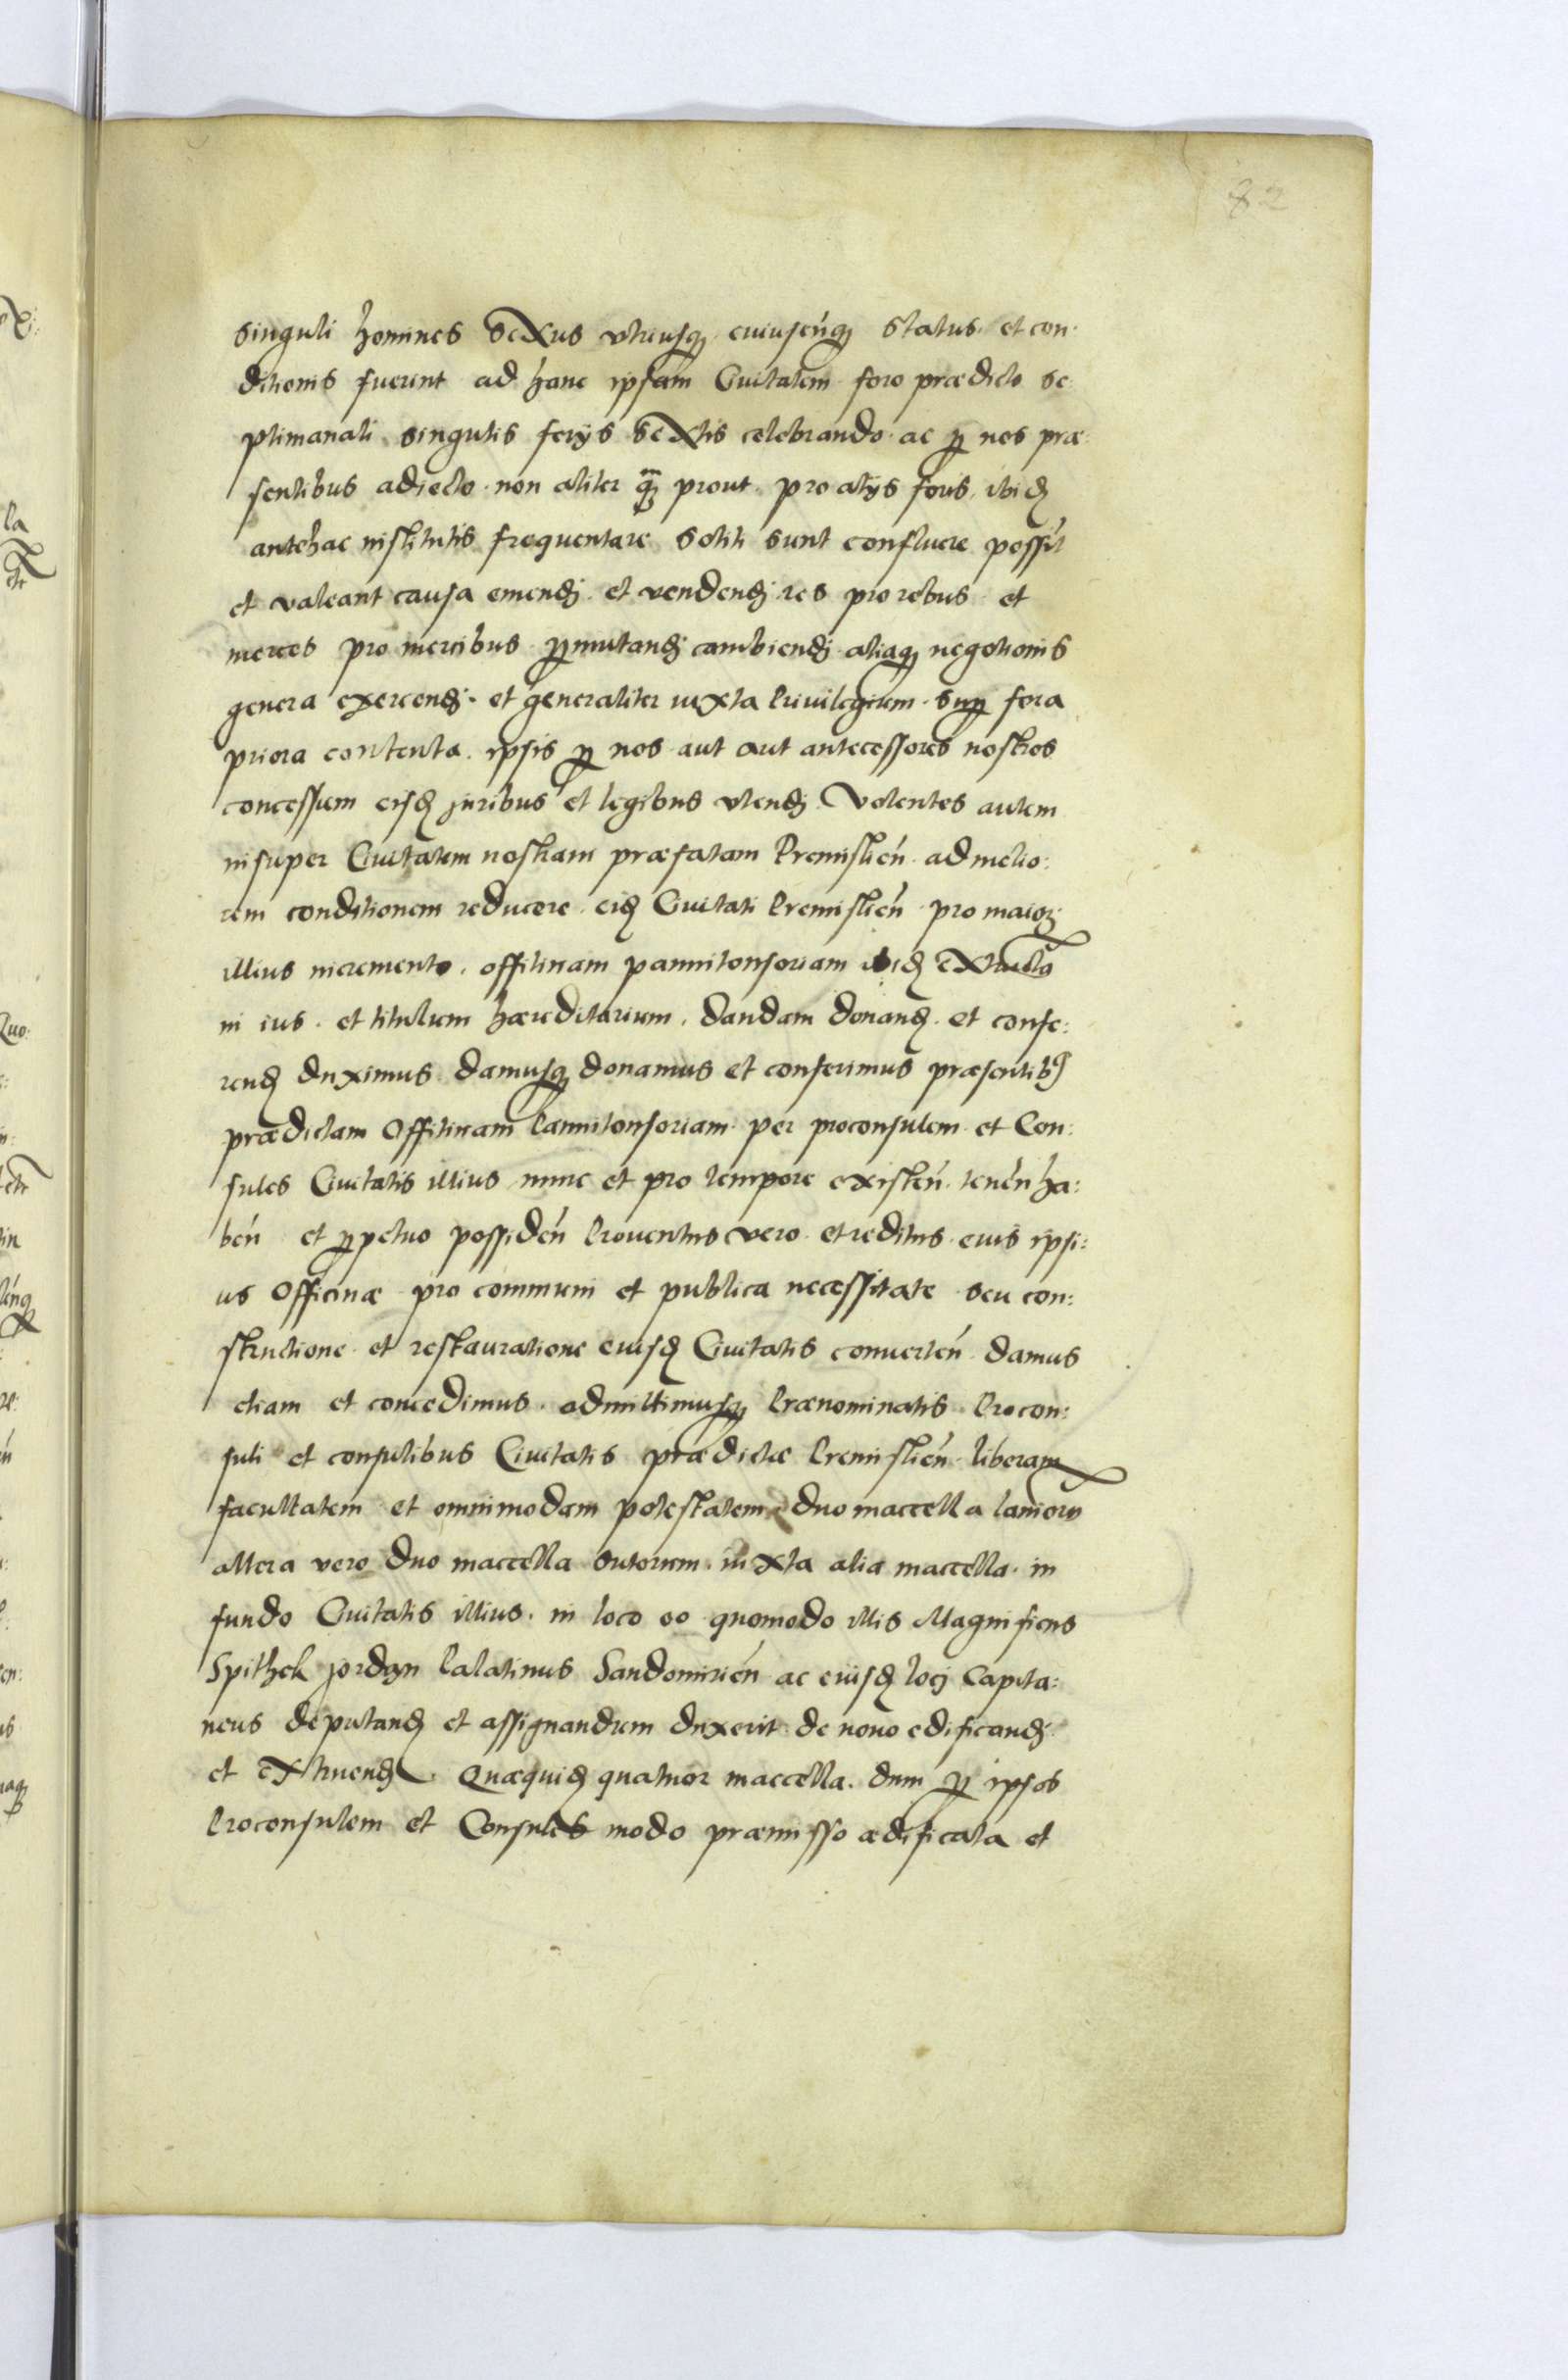 82
singuli homines sexus vtriusq cuiuscúnq status et con.
ditionis fuerint ad hanc ipsam Ciuitatem foro prædicto se
ptimanali singulis ferijs sextis celebrando ac p nos præ
sentibus adiecto non aliter q̃ prout pro alijs foris ibid
antehac institutis frequentare soliti sunt confluere possint
et valeant causa emendj et vendendj res pro rebus et
merces pro mercibus pmutandj cambiendj aliaq negotionis
genera exercendj et generaliter iuxta Priuilegium sup fora
priora contenta ipsis p nos aut aut antecessores nostros
concessum eisd juribus et legibus vtendj Volentes autem
insuper Ciuitatem nostram præfatam Premislień ad melio:
rem conditionem reducere eid Ciuitati Premislień pro maiorj
illius incremento, offitinam pannitonsoriam ibid extructã
in ius et titulum hæreditarium, dandam donand et confe:
rend duximus damusq donamus et conferimus præsentib9
prædictam Offitinam Pannitonsoriam per proconsulem et Con:
sules Ciuitatis illius nunc et pro tempore existeń teneń ha:
beń et ppetuo possideń Prouentus vero et reditus eius ipsi:
us Officinæ pro communi et publica necessitate seu con:
structione et restauratione eiusd Ciuitatis conuerteń damus
etiam et concedimus admittimusq Prænominatis Procon:
suli et consulibus Ciuitatis prædictæ Premislień liberam
facultatem et omnimodam potestatem duo maccella laniorũ
altera vero duo maccella sutorum iuxta alia maccella in
fundo Ciuitatis illius in loco eo quomodo illis Magnificus
Spithek jordan Palatinus Sandomirień ac eiusd locj Capita:
neus deputand et assignandum duxerit de nouo edificandj
et extruendj. Quæquid quatuor maccella dum p ipsos
Proconsulem et Consules modo præmisso ædificata et